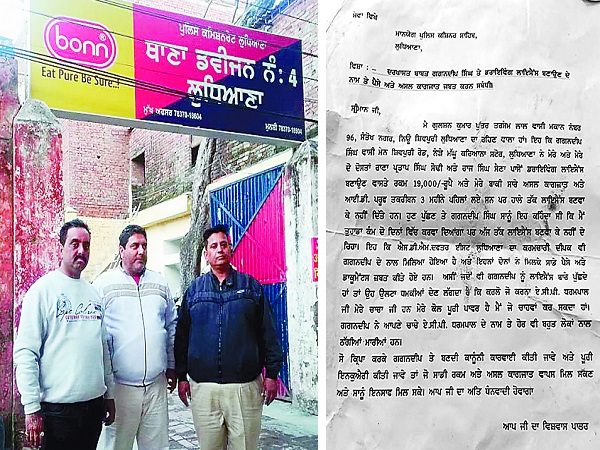 bonn
Eat Pure Be Sure...!
ਪੁਲਿਸ ਕਮਿਸ਼ਨਰੇਟ ਲੁਧਿਆਣਾ
ਥਾਣਾ ਡਵੀਜਨ ਨੰ: 4
ਲੁਧਿਆਣਾ
ਮੁੱਖ ਅਫਸਰ 78370-18604
ਮੁਨਸ਼ੀ 78370-18904
ਸੇਵਾ ਵਿਖੇ
ਮਾਨਯੋਗ ਪੁਲਿਸ ਕਮਿਸ਼ਨਰ ਸਾਹਿਬ,
ਲੁਧਿਆਣਾ,
ਵਿਸ਼ਾ : _ ਦਰਖਾਸਤ ਬਾਬਤ ਗਗਨਦੀਪ ਸਿੰਘ ਤੇ ਡਰਾਇਵਿੰਗ ਲਾਇਸੈਂਸ ਬਣਾਉਣ ਦੇ
ਨਾਮ ਤੇ ਪੈਸੇ ਅਤੇ ਅਸਲ ਕਾਗਜਾਤ ਜਬਤ ਕਰਨ ਸਬੰਧੀ।
ਸ੍ਰੀਮਾਨ ਜੀ,
ਮੈ ਗੁਲਸ਼ਨ ਕੁਮਾਰ ਪੁੱਤਰ ਤਰਸੇਮ ਲਾਲ ਵਾਸੀ ਮਕਾਨ ਨੰਬਰ
96, ਸੰਤੋਖ ਨਗਰ, ਨਿਊ ਸ਼ਿਵਪੁਰੀ ਲੁਧਿਆਣਾ ਦਾ ਰਹਿਣ ਵਾਲਾ ਹਾਂ। ਇਹ ਕਿ ਗਗਨਦੀਪ
ਸਿੰਘ ਵਾਸੀ ਮੇਨ ਸ਼ਿਵਪੁਰੀ ਰੋਡ, ਨੇੜੇ ਮੱਘੂ ਕਰਿਆਨਾ ਸਟੋਰ, ਲੁਧਿਆਣਾ ਨੇ ਮੇਰੇ ਅਤੇ ਮੇਰੇ
ਦੋ ਦੋਸਤਾਂ ਰਾਣਾ ਪ੍ਰਤਾਪ ਸਿੰਘ ਸੋਢੀ ਅਤੇ ਰਾਜ ਸਿੰਘ ਸੈਣਾ ਪਾਸੋਂ ਡਰਾਇਵਿੰਗ ਲਾਇਸੈਂਸ
ਬਣਾਉਣ ਵਾਸਤੇ ਰਕਮ 19,000/-ਰੂਪੈ ਅਤੇ ਮੇਰੇ ਬਾਕੀ ਸਾਰੇ ਅਸਲ ਕਾਗਜਾਤ ਅਤੇ
ਆਈ.ਡੀ. ਪਰੂਫ ਤਕਰੀਬਨ 3 ਮਹੀਨੇ ਪਹਿਲਾਂ ਲਏ ਸਨ ਪਰ ਹਾਲੇ ਤੱਕ ਲਾਇਸੈਂਸ ਬਣਵਾ ਕੇ
ਨਹੀਂ ਦਿੱਤੇ ਹਨ। ਹੁਣ ਪੁੱਛਣ ਤੇ ਗਗਨਦੀਪ ਸਿੰਘ ਸਾਨੂੰ ਇਹ ਕਹਿੰਦਾ ਸੀ ਕਿ ਮੈਂ
ਤੁਹਾਡਾ ਕੰਮ ਦੋ ਦਿਨਾਂ ਵਿੱਚ ਕਰਵਾ ਦਿਆਂਗਾ ਪਰ ਅੱਜ ਤੱਕ ਲਾਇਸੈਂਸ ਬਣਵਾ ਕੇ ਨਹੀਂ ਦੇ
ਰਿਹਾ। ਇਹ ਕਿ ਐਸ.ਡੀ.ਐਮ.ਦਫਤਰ ਈਸਟ ਲੁਧਿਆਣਾ ਦਾ ਕਰਮਚਾਰੀ ਦੀਪਕ ਵੀ
ਗਗਨਦੀਪ ਦੇ ਨਾਲ ਮਿਲਿਆ ਹੋਇਆ ਹੈ ਅਤੇ ਇਹਨਾਂ ਦੋਨਾਂ ਨੇ ਮਿਲਕੇ ਸਾਡੇ ਪੈਸੇ ਅਤੇ
ਡਾਕੂਮੈਂਟਸ ਜਬਤ ਕੀਤੇ ਹੋਏ ਹਨ। ਅਸੀਂ ਜਦੋਂ ਵੀ ਗਗਨਦੀਪ ਨੂੰ ਲਾਇਸੈਂਸ ਬਾਰੇ ਪੁੱਛਦੇ
ਹਾਂ ਤਾਂ ਉਹ ਉਲਟਾ ਧਮਕੀਆਂ ਦੇਣ ਲੱਗਦਾ ਹੈ ਕਿ ਕਰਲੋ ਜੋ ਕਰਨਾ ਏ.ਸੀ.ਪੀ. ਧਰਮਪਾਲ
ਜੀ ਮੇਰੇ ਚਾਚਾ ਜੀ ਹਨ ਮੇਰੇ ਕੋਲ ਪੂਰੀ ਪਾਵਰ ਹੈ ਮੈਂ ਜੋ ਚਾਹਵਾਂ ਕਰ ਸਕਦਾ ਹਾਂ।
ਗਗਨਦੀਪ ਨੇ ਆਪਣੇ ਚਾਚੇ ਏ.ਸੀ.ਪੀ. ਧਰਮਪਾਲ ਦੇ ਨਾਮ ਤੇ ਹੋਰ ਵੀ ਬਹੁਤ ਲੋਕਾਂ ਨਾਲ
ਠੱਗੀਆਂ ਮਾਰੀਆਂ ਹਨ।
ਸੋ ਕਿਰਪਾ ਕਰਕੇ ਗਗਨਦੀਪ ਤੇ ਬਣਦੀ ਕਾਨੂੰਨੀ ਕਾਰਵਾਈ ਕੀਤੀ ਜਾਵੇ ਅਤੇ ਪੂਰੀ
ਇਨਕੁਐਰੀ ਕੀਤੀ ਜਾਵੇ ਤਾਂ ਜੋ ਸਾਡੀ ਰਕਮ ਅਤੇ ਅਸਲ ਕਾਗਜਾਤ ਵਾਪਸ ਮਿਲ ਸਕਣ
ਅਤੇ ਸਾਨੂੰ ਇਨਸਾਫ ਮਿਲ ਸਕੇ। ਆਪ ਜੀ ਦਾ ਅਤਿ ਧੰਨਵਾਦੀ ਹੋਵਾਂਗਾ
ਆਪ ਜੀ ਦਾ ਵਿਸ਼ਵਾਸ ਪਾਤਰ